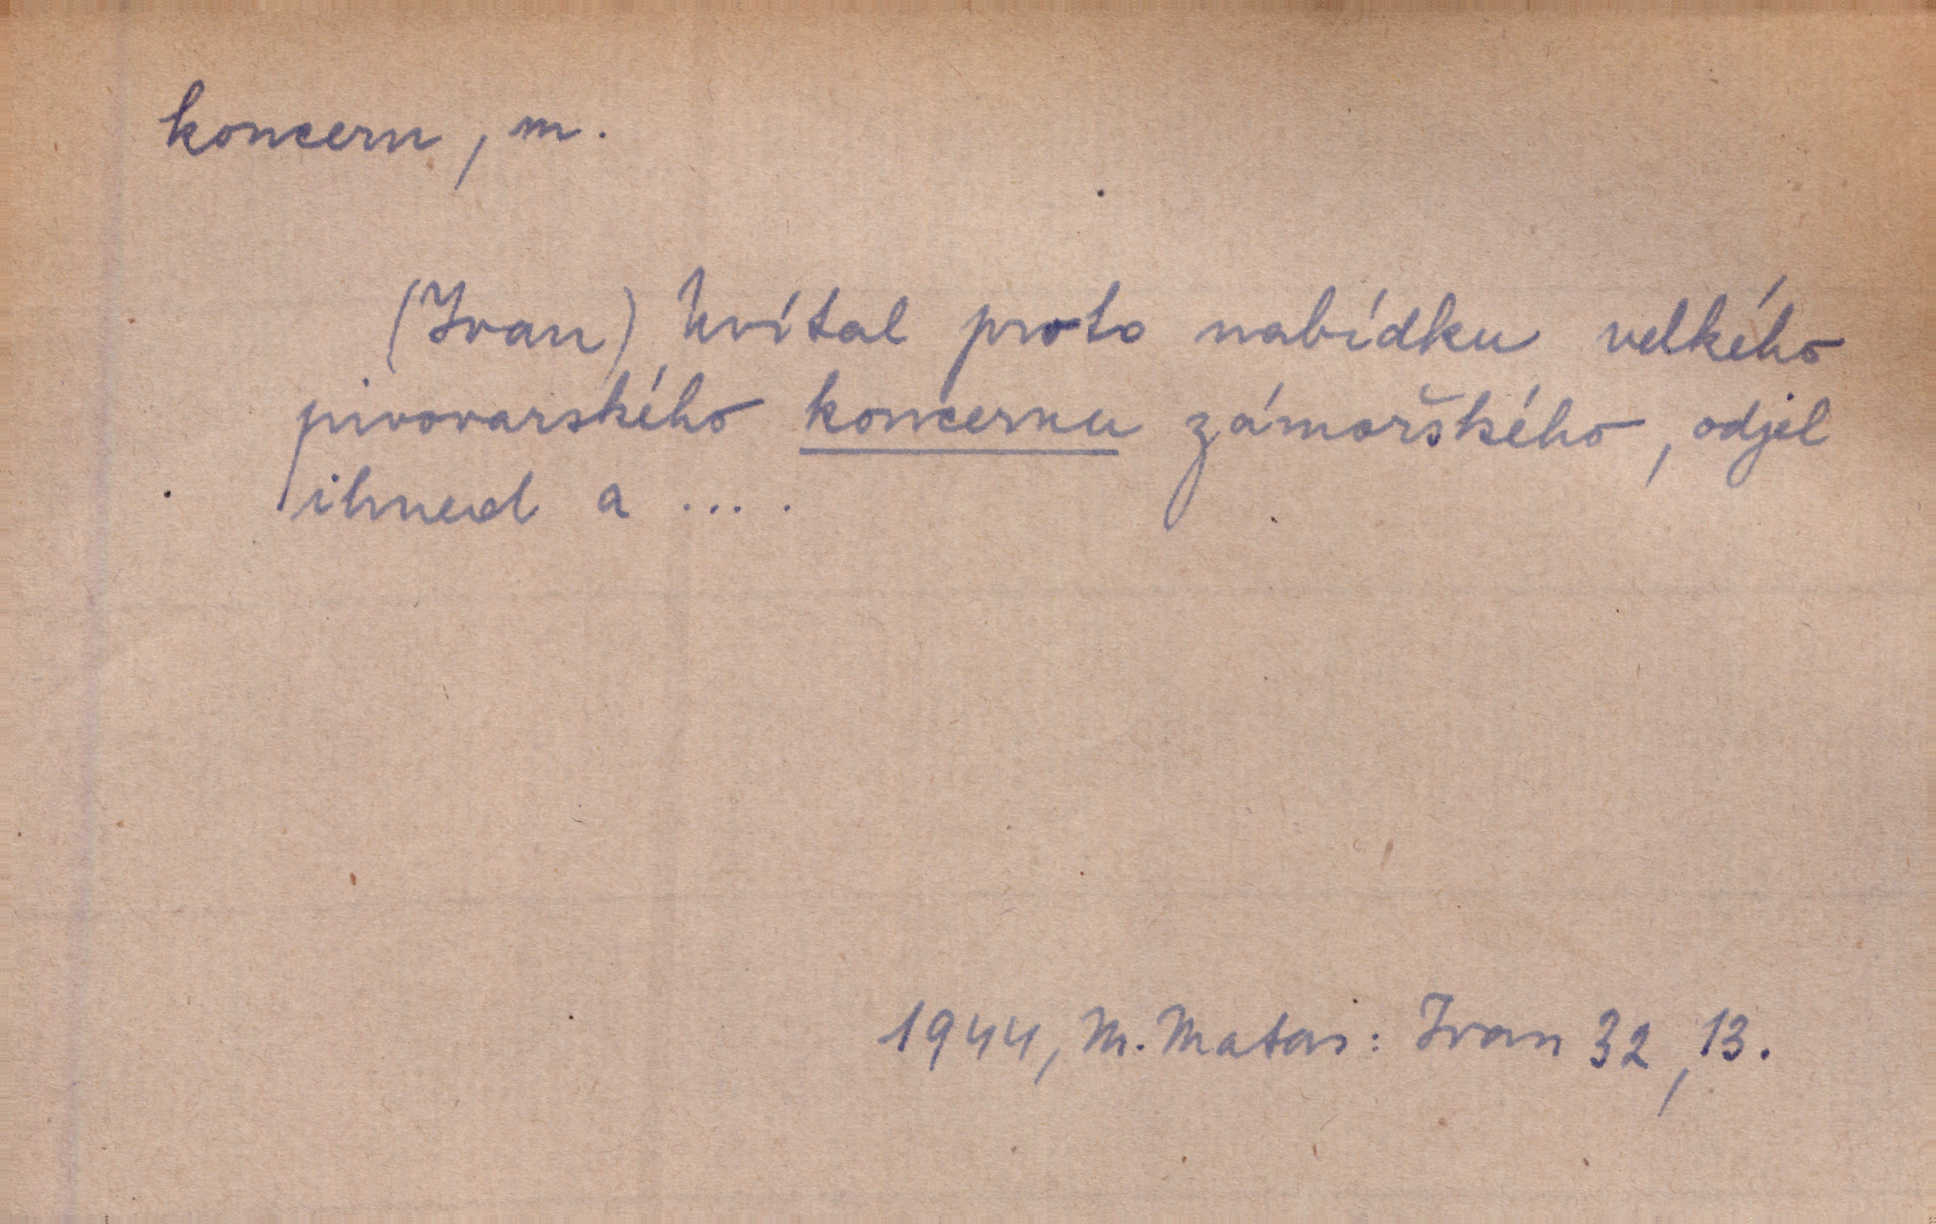 koncern, m.
(Ivan) Uvítal proto nabídku velkého
pivovarského koncernu zámořského, odjel
ihned a ....
1944, M. Matas: Ivan 32, 13.